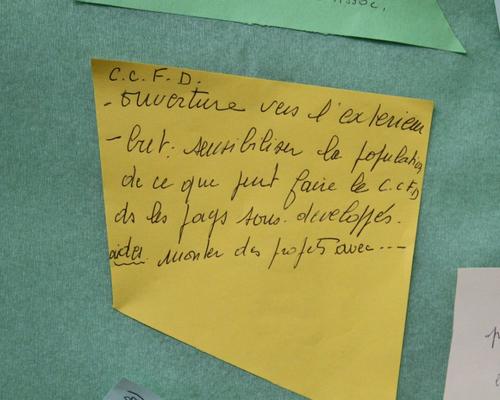 Assoc.
C.C.F.D.
- ouverture vers l'exterieur
- but : sensibiliser la population
de ce que peut faire le C.C.F.D
ds les pays sous-développés.
aider monter des projets avec ---